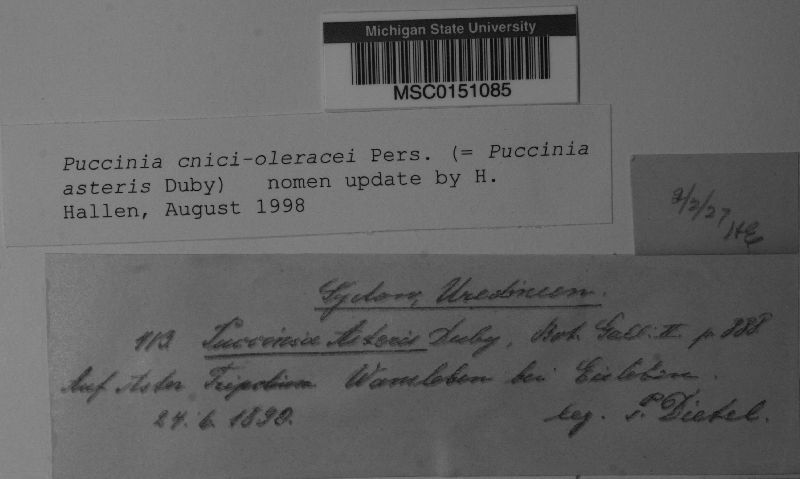 Michigan State University
MSC0151085
Puccinia cnici-oleracei Pers. (= Puccinia
asteris Duby) nomen update by H.
Hallen, August 1998
2/2/27
Sydow, Uredineen.
113 Puccinia Asteris Duby, Bot. Gall. II p. 888
Auf Aster Tripolium Wansleben bei Eisleben.
24. 6. 1890. leg. P. Dietel.